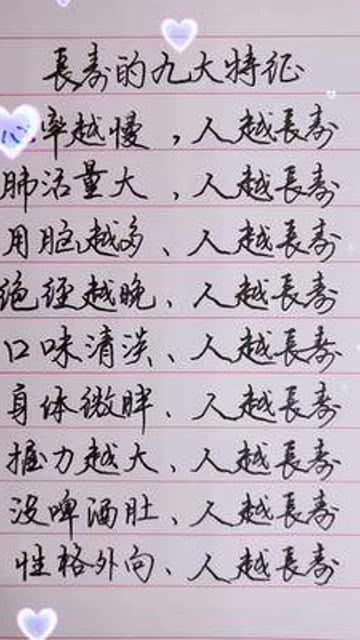 長寿的九大特征
心率越慢，人越長寿
肺活量大，人越長寿
用脑越多、人越長寿
绝经越晚、人越長寿
口味清淡、人越長寿
身体微胖、人越長寿
握力越大、人越長寿
没啤酒肚、人越長寿
性格外向、人越長寿